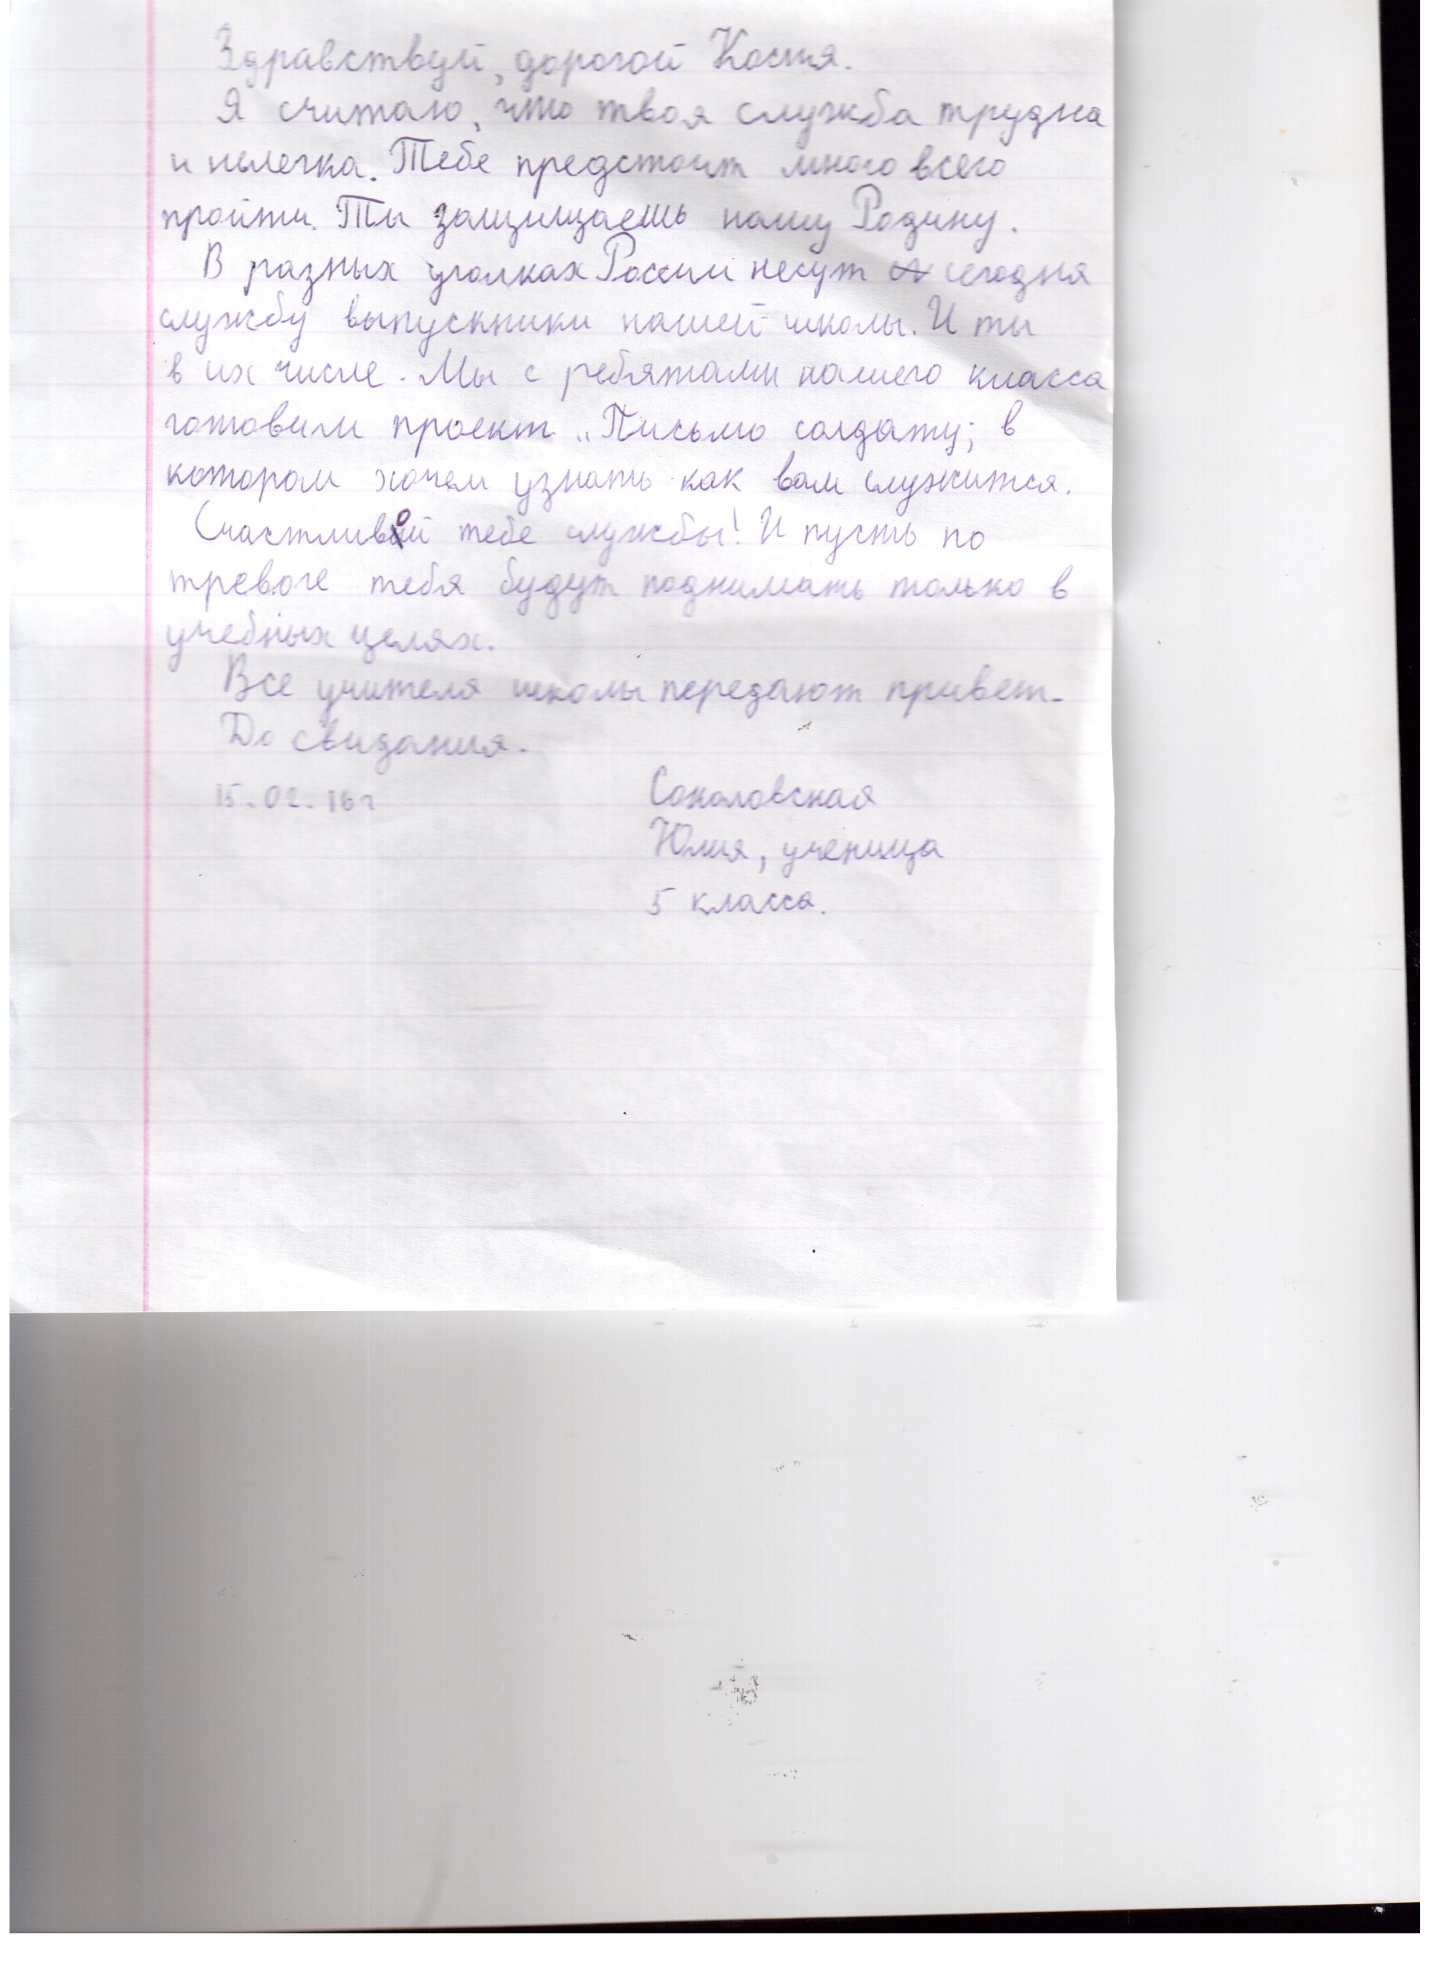 Здравствуй, дорогой Костя.
Я считаю, что твоя служба трудна
и нелегка. Тебе предстоит много всего
пройти. Ты защищаешь нашу Родину.
В разных уголках России несут сегодня
службу выпускники нашей школы. И ты
в их числе. Мы с ребятами нашего класса
готовили проект „Письмо солдату", в
котором хочем узнать как вам служится.
Счастливой тебе службы! И пусть по
тревоге тебя будут поднимать только в
учебных целях.
Все учителя школы передают привет.
До свидания.
15.02.16г Соколовская
Юлия, ученица
5 класса.